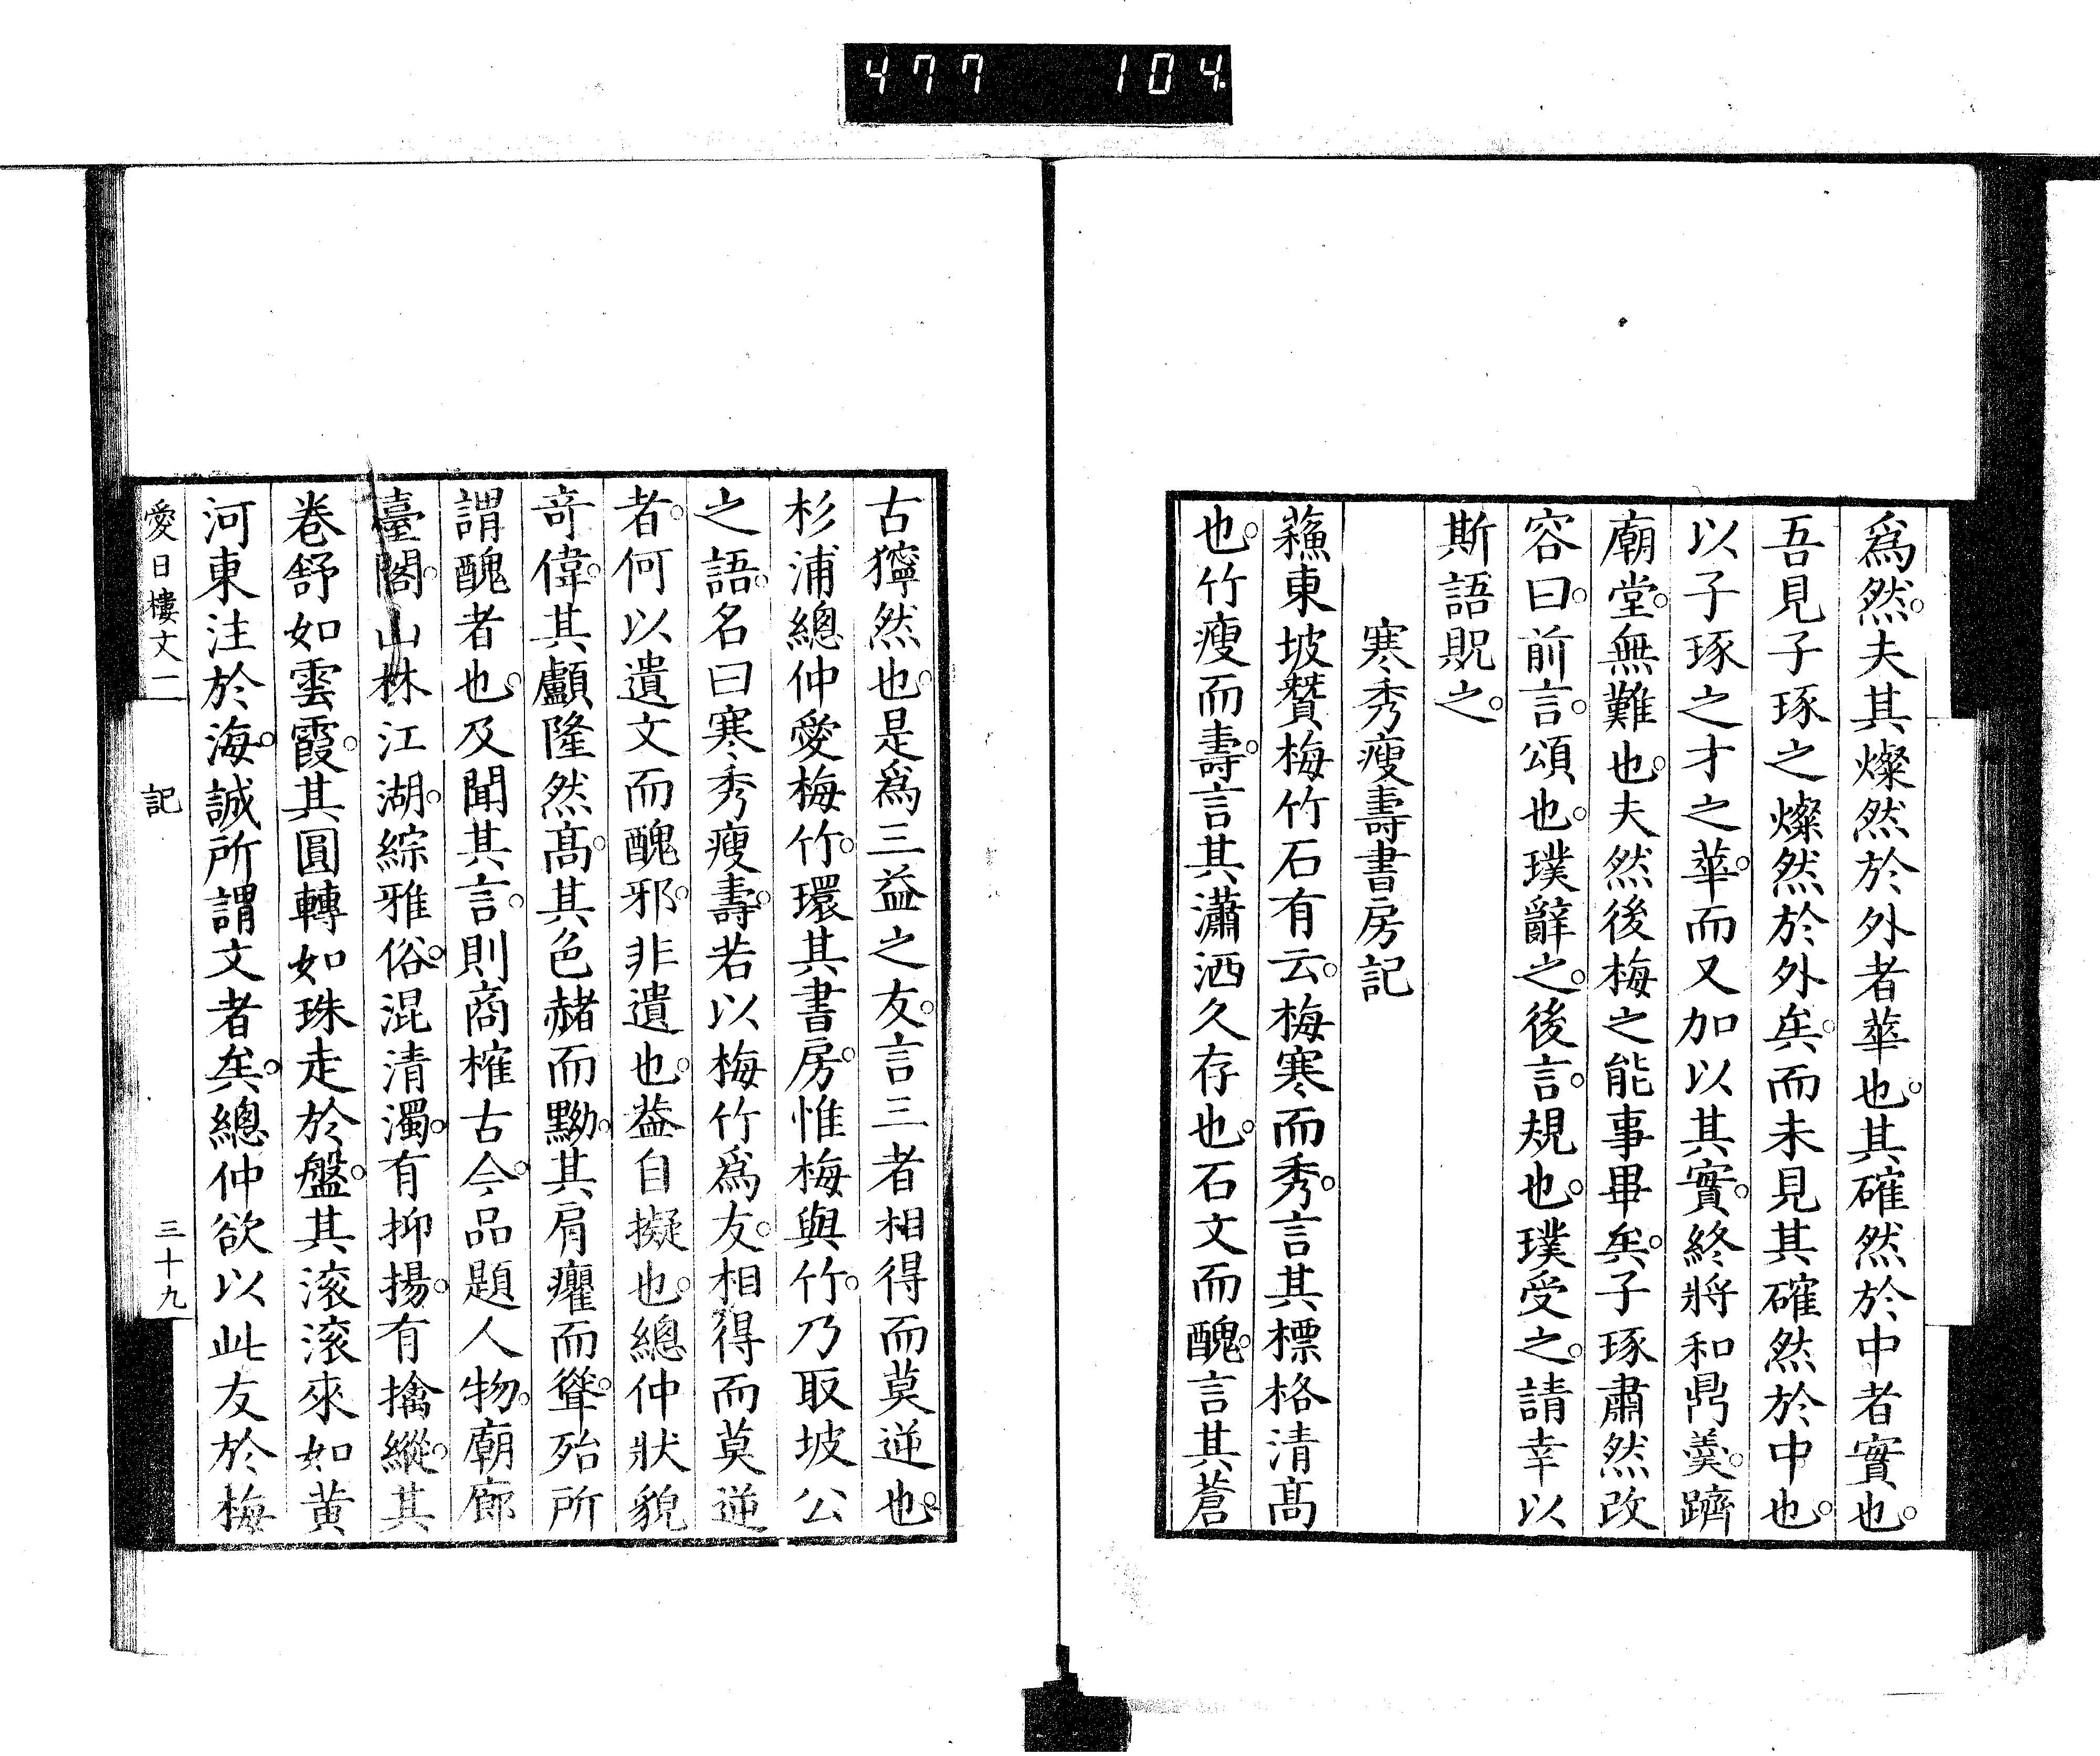 477 104
爲然。夫其燦然於外者華也。其確然於中者實也。
吾見子琢之燦然於外矣。而未見其確然於中也。
以子琢之才之華。而又加以其實。終將和鼎羹。躋
廟堂。無難也。夫然後梅之能事畢矣。子琢肅然改
容曰。前言。頌也。璞辭之。後言。規也。璞受之。請幸以
斯語貺之。
寒秀瘦壽書房記
蘓東坡賛梅竹石有云。梅寒而秀。言其標格清髙
也。竹瘦而壽。言其瀟洒久存也。石文而醜。言其蒼
古獰然也。是爲三益之友。言三者相得而莫逆也。
杉浦總仲愛梅竹。環其書房。惟梅與竹。乃取坡公
之語。名曰寒秀瘦壽。若以梅竹爲友。相得而莫逆
者。何以遺文而醜邪。非遺也。葢自擬也。總仲狀貌
竒偉。其顱隆然髙。其色赭而黝。其肩癯而聳。殆所
謂醜者也。及聞其言。則商榷古今。品題人物。廟廊
臺閣。山林江湖。綜雅俗。混清濁。有抑揚。有擒縱。其
卷舒如雲霞。其圓轉如珠走於盤。其滚滚來如黄
河東注於海。誠所謂文者矣。總仲欲以此友於梅
愛日樓文二 記 三十九